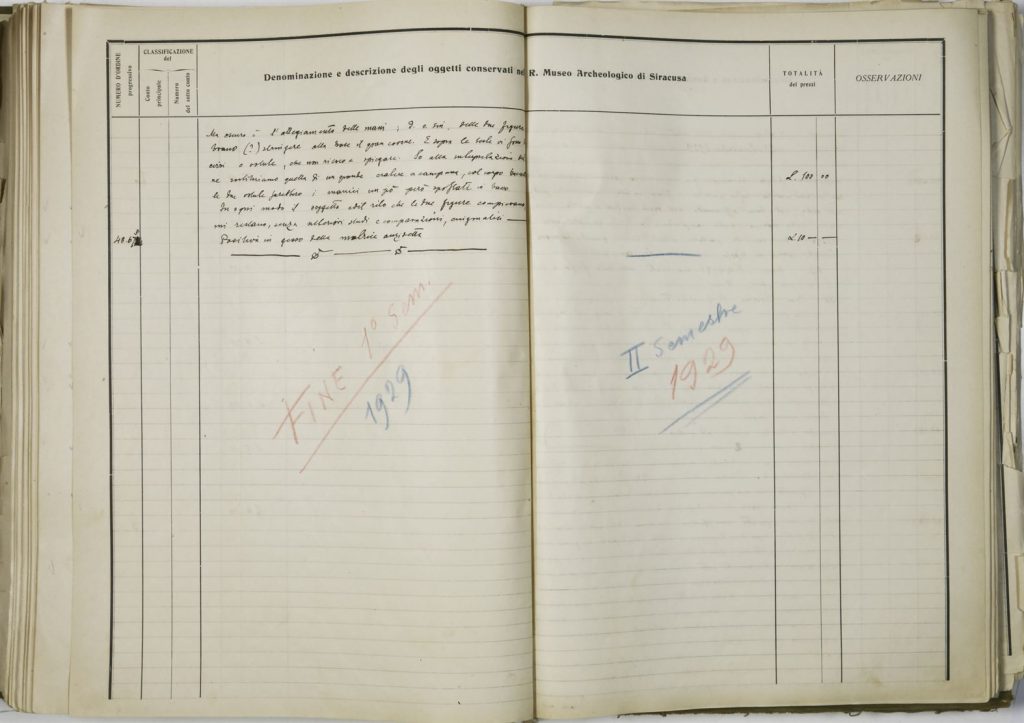 NUMERO D'ORDINE
progressivo
CLASSIFICAZIONE
del
Conto
principale
Numero
del sotto conto
Denominazione e descrizione degli oggetti conservati nel R. Museo Archeologico di Siracusa
TOTALITÀ
dei prezzi
OSSERVAZIONI
Ma oscuro è l'atteggiamento delle mani; d. e sin. delle due figure
(?) stringere alla base il gran corno. E sopra le
e volute, che non riesco a spiegare. Se alla
ne sostituiamo quella di un grande cratere a campana, col corpo
le due volute sarebbero i manici un pò però spostate in basso
In ogni modo il soggetto ed il rito che le due figure
mi restano, senza ulteriori studi e comparazioni, enigmatici
L. 100 00
Positivo in gesso della matrice anzidetta
L. 10
FINE 1º Sem.
1929
II Semestre
1929